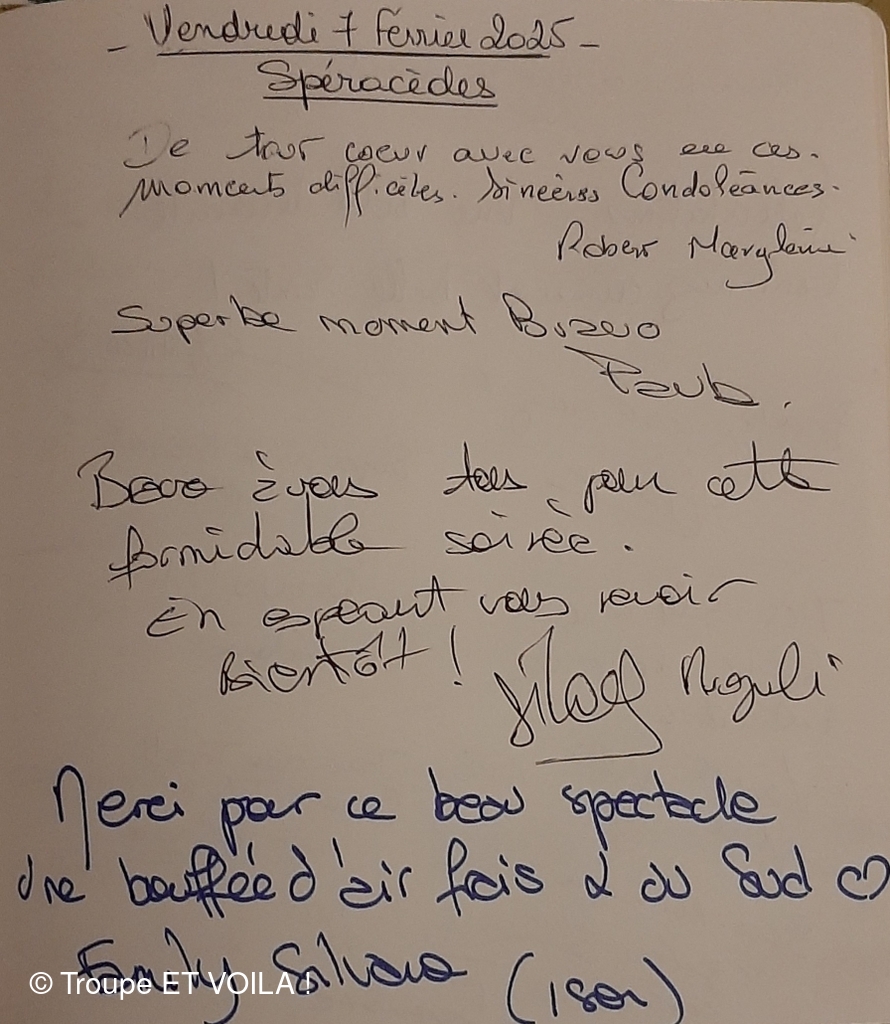 - Vendredi 7 Février 2025 -
Spéracèdes
De tout coeur avec vous en ces
moments difficiles. Sincères Condoléances.
Robert
Superbe moment Bravo
Bravo à vous tous pour cette
formidable soirée.
En espérant vous revoir
Bientôt !
Merci pour ce beau spectacle
Une bouffée d'air frais & du Sud ♡
Family
© Troupe ET VOILA !